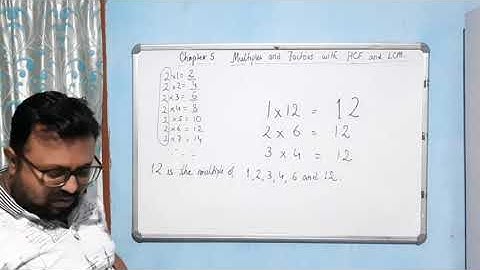 Chapter 5 Multiples and Factors with HCF and LCM
2 × 1 = 2
2 × 2 = 4
2 × 3 = 6
2 × 4 = 8
2 × 5 = 10
2 × 6 = 12
2 × 7 = 14
1 × 12 = 12
2 × 6 = 12
3 × 4 = 12
12 is the multiple of 1, 2, 3, 4, 6 and 12.